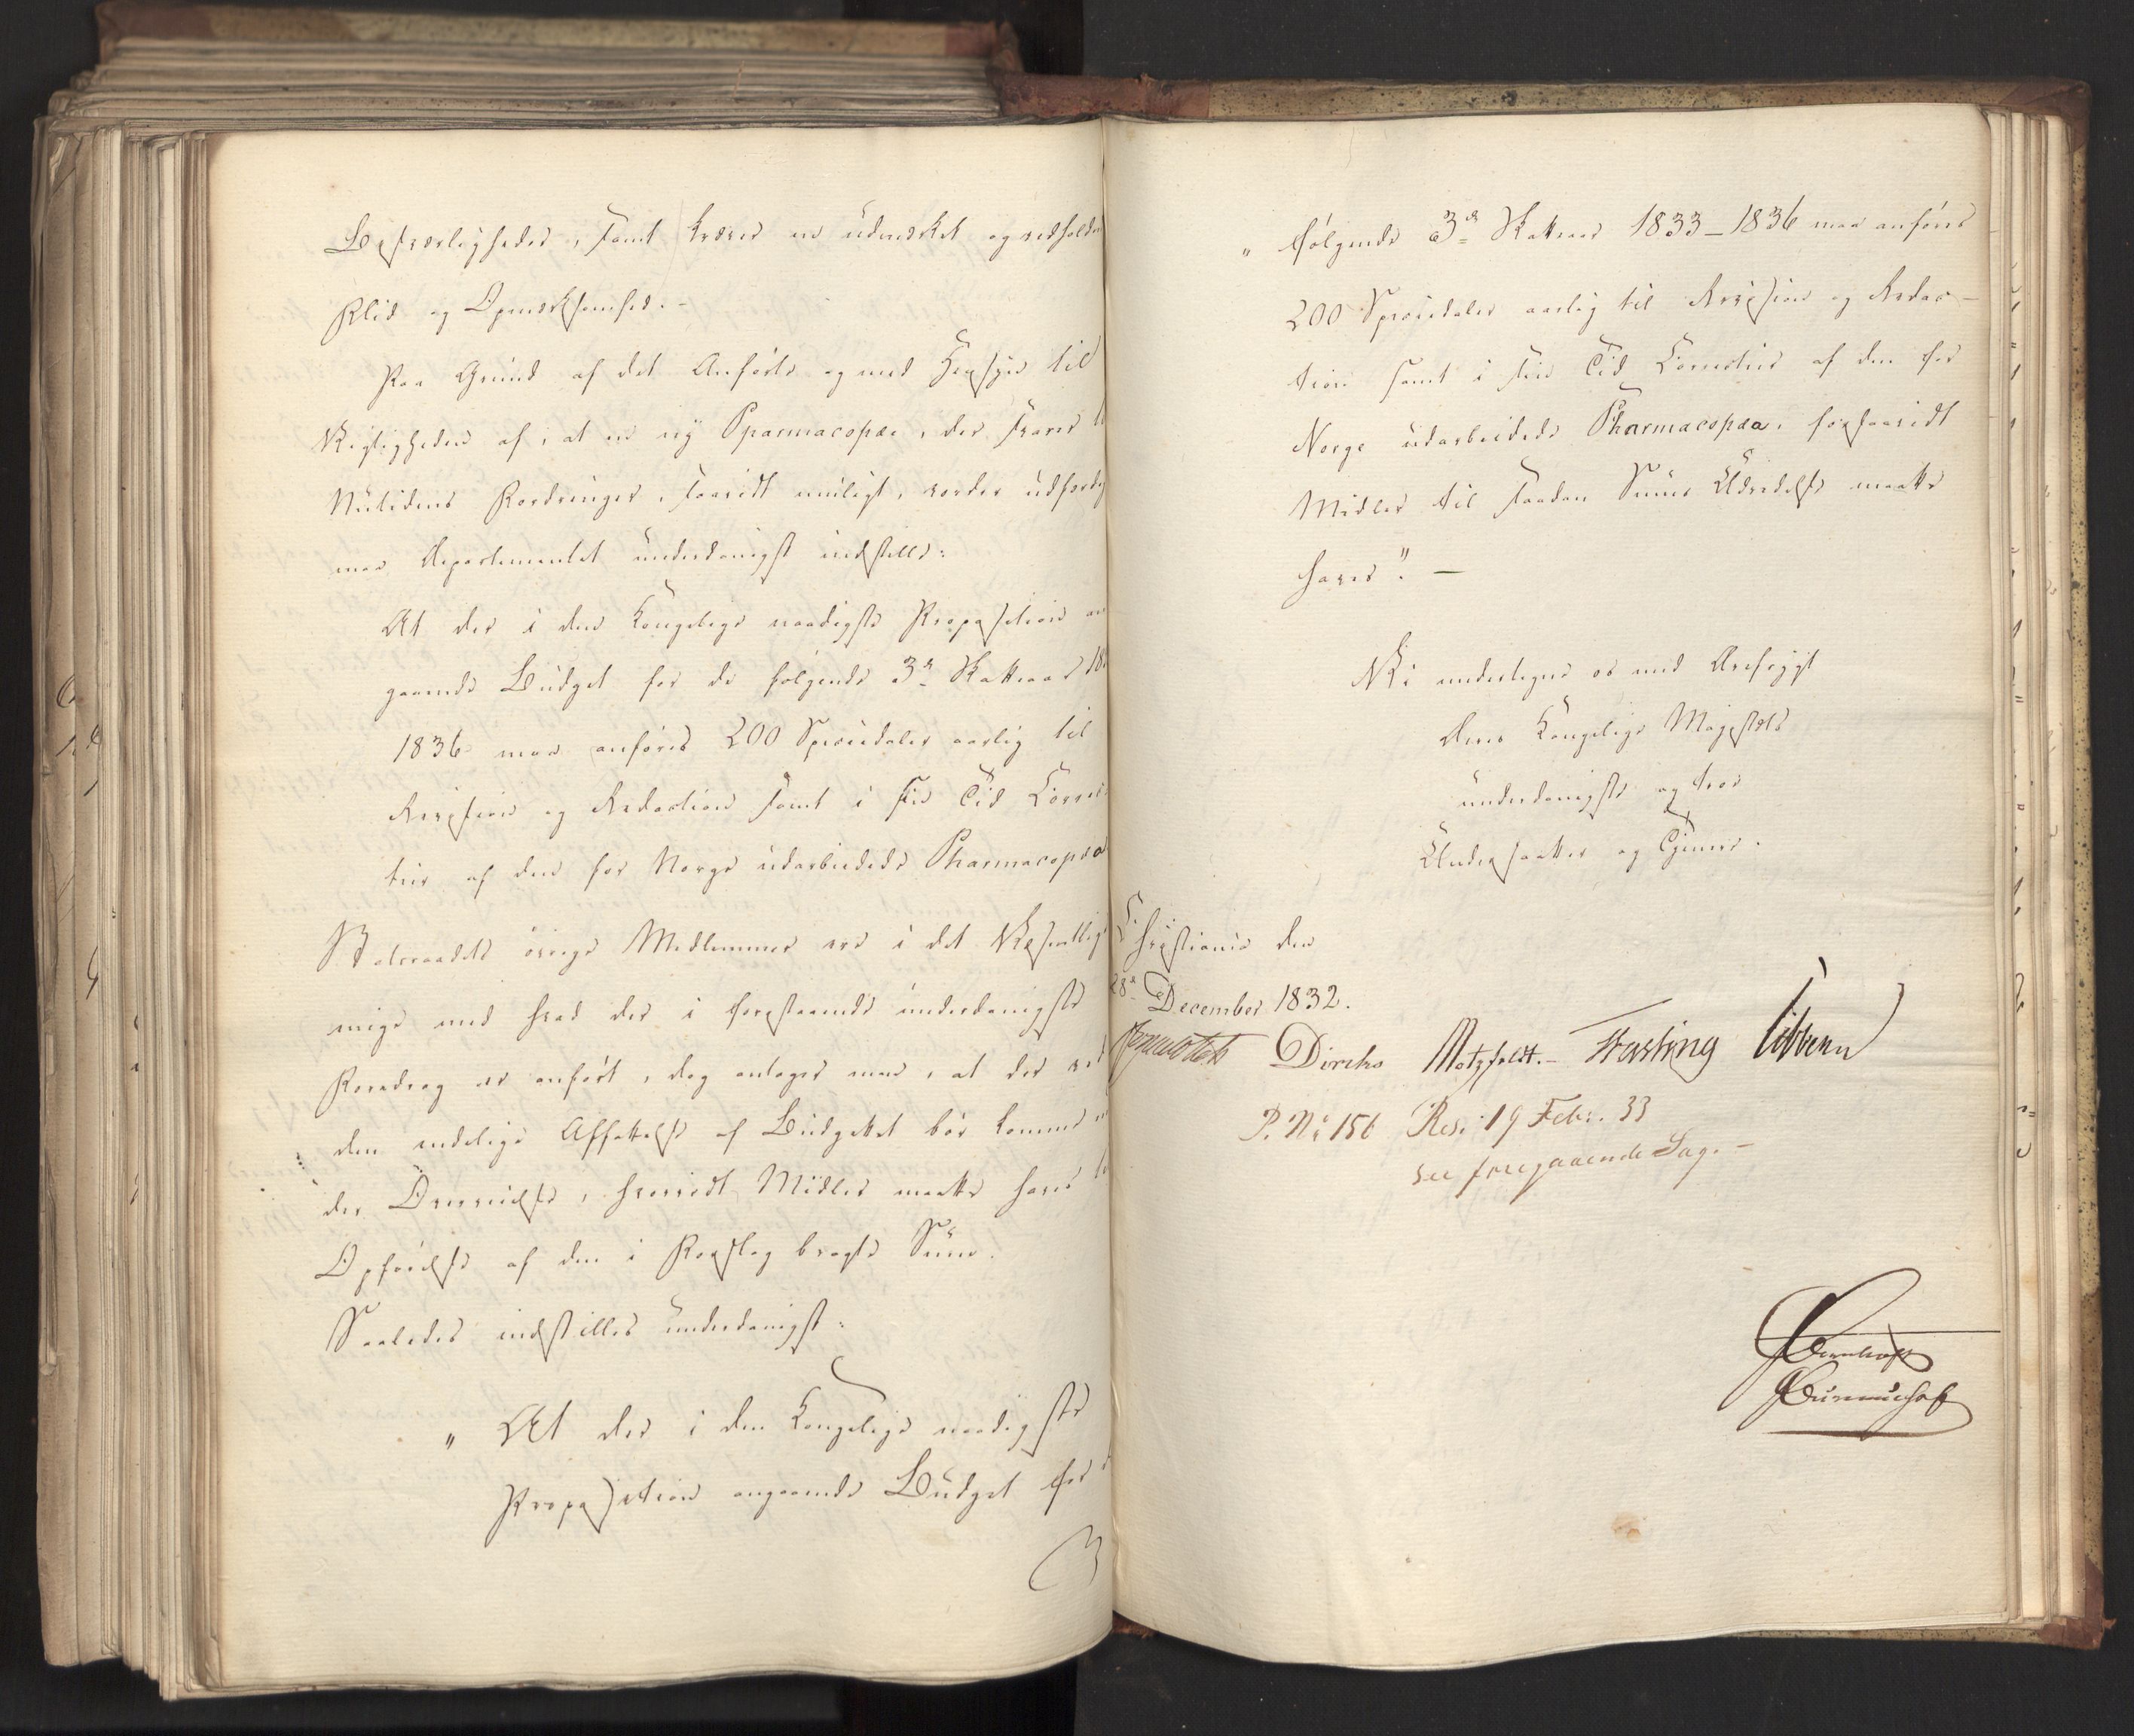 Besværligheder, samt kræver en udmærket og vedholden
Flid og Opmærksomhed. -
Paa Grund af det Anførte og med Hensyn til
Vigtigheden af, at en ny Pparmacopæa, der svarer t
Nutidens Fordringer, saavidt muligt, vorder udfærdig
maa Departementet underdanigst indstille:
At der i den Kongelige naadigste Proposition an
gaaende Budget for de følgende 3de Skatteaar 18
1836 maa anføres 200 Speciedaler aarlig til
Revision og Redaction samt i sin Tid Correc
tur af den for Norge udarbeidede Pharmacopæa
Statsraadets øvrige Medlemmer ere i det Væsentlig
enige med hvad der i forestaaende underdanigste
Foredrag er anført, dog antager man, at der ved
den endelige Affattelse af Budgettet bør komme
der Overveielse, hvorvidt Midler maatte haves t
Opførelse af den i Forslag bragte Sum.
Saaledes indstilles underdanigst:
„ At der i den Kongelige naadigste
Proposition angaaende Budget for
„ følgende 3de Skatteaar 1833-1836 maa anføres
200 Speciedaler aarlig til Revision og Redac-
tion samt i sin Tid Correctur af den for
Norge udarbeidede Pharmacopæa, forsaavidt
Midler til saadan Sums Udredelse maatte
haves". -
Vi undertegne os med Ærefrygt
Deres Kongelige Majestæts
underdanigste og troe
Undersaatter og Tjenere.
Christiania den
28de December 1832.
Diriks Motzfeldt. - Fasting Vibbern
P. No 156 Res. 19 Febr. 33
see foregaaende Sag. -